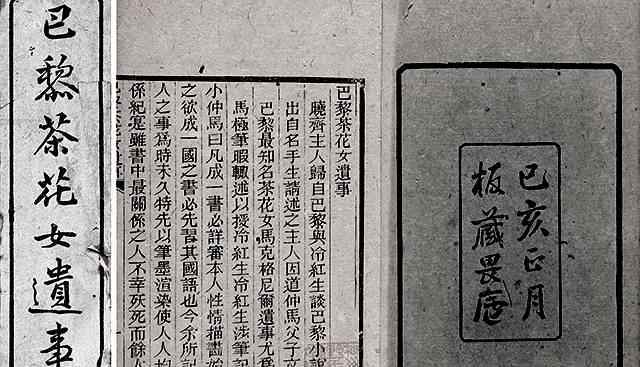 巴黎茶花女遺事
巴黎茶花女遺事
曉齋主人歸自巴黎與冷紅生談巴黎小說
出自名手生請述之主人因道仲馬父子文
巴黎最知名茶花女馬克格尼爾遺事尤爲
馬極筆暇輒述以授冷紅生冷紅生涉筆記
小仲馬曰凡成一書必詳審本人性情描畫始
之欲成一國之書必先習其國語也今余所記
人之事爲時未久特先以筆墨渲染使人人均
係紀實雖書中最關係之人不幸殀死而餘人
己亥正月
板藏畏廬